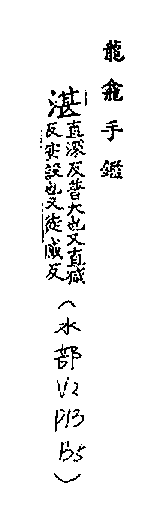 龍龕手鑑
湛直深反普大也又直減
反實設也又徒減反
(水部
V2
P13
B5)